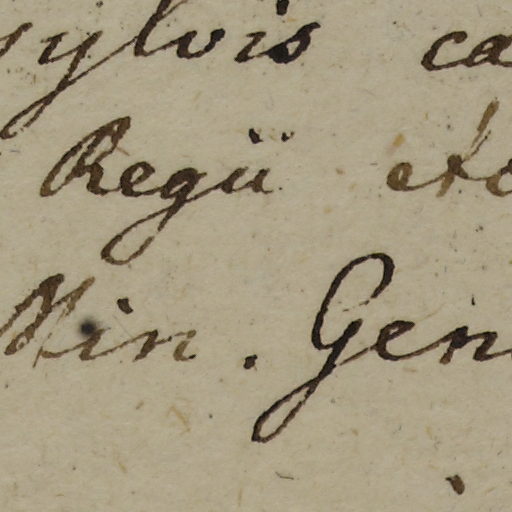 sylvis ca
Regii etc
Min. Gen